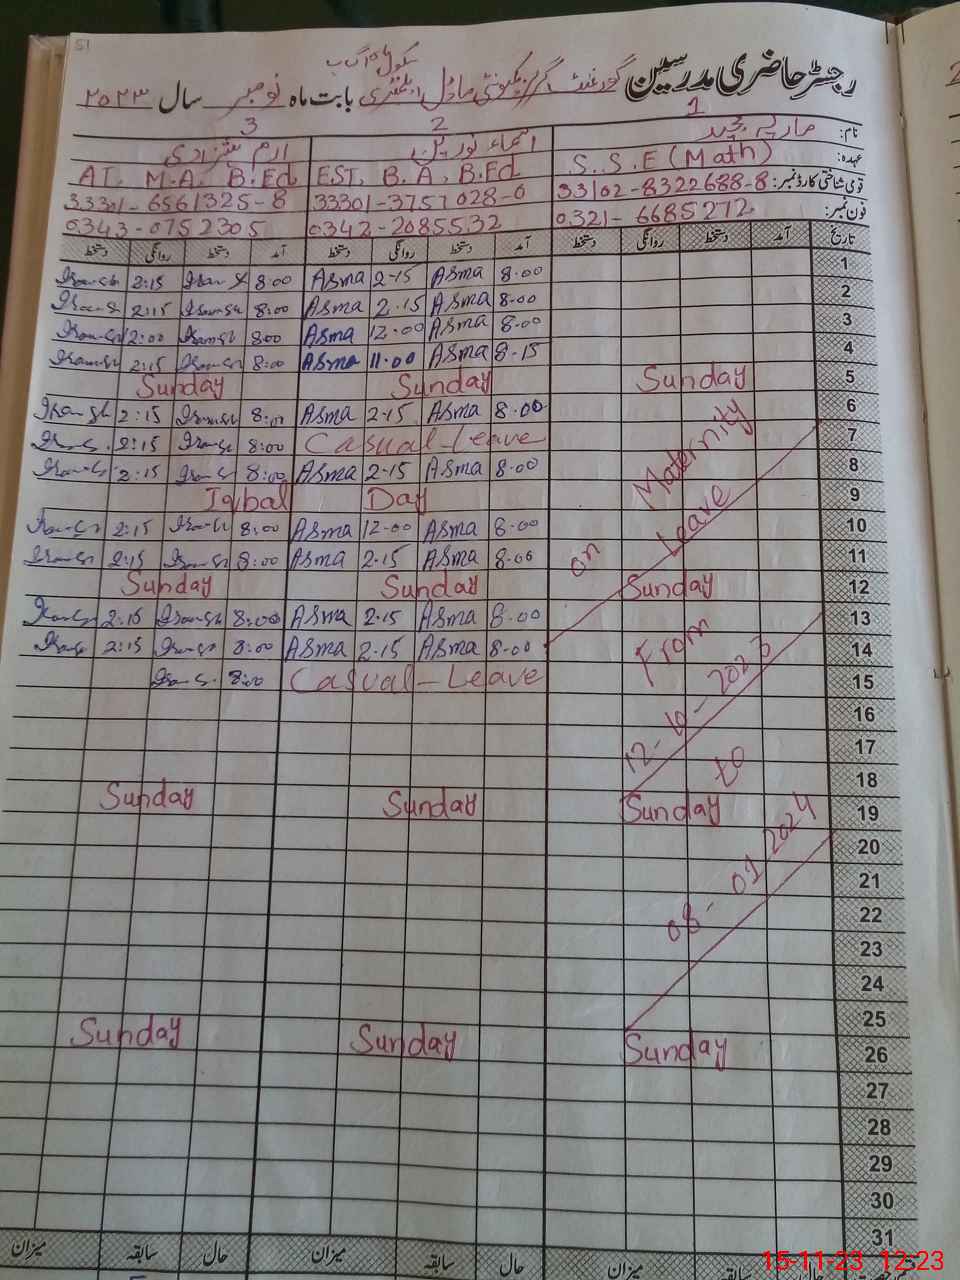 51
رجسٹر حاضری مدرسین گورنمنٹ گرلز کمیونٹی ماڈل ایلمنٹری سکول بابت ماہ نومبر سال ۲۰۲۳
1 2 3
نام: ماریہ مجید اسماء نورین ارم شہزادی
عہدہ: S.S.E (Math) EST, B.A, B.Ed AT. M.A, B.Ed
قومی شناختی کارڈ نمبر: 33102-8322688-8 33301-3757028-0 33301-6561325-8
فون نمبر: 0321-6685272 0342-2085532 0343-0752305
تاریخ آمد دستخط روانگی دستخط آمد دستخط روانگی دستخط آمد دستخط روانگی دستخط
1 8.00 Asma 2-15 Asma 8:00 Iramsh 2:15 Iramsh
2 8.00 Asma 2.15 Asma 8:00 Iramsh 2:15 Iramsh
3 8.00 Asma 12.00 Asma 8:00 Iramsh 12:00 Iramsh
4 8-15 Asma 11.00 Asma 8:00 Iramsh 2:15 Iramsh
5 Sunday Sunday Sunday
6 8.00 Asma 2-15 Asma Iramsh 2:15 Iramsh
7 Casual Leave 8:00 Iramsh 2:15 Iramsh
8 8.00 Asma 2-15 Asma 8:00 Iramsh 2:15 Iramsh
9 Iqbal Day
10 8.00 Asma 12-00 Asma 8:00 Iramsh 2:15 Iramsh
11 8.00 Asma 2.15 Asma 8:00 Iramsh 2:15 Iramsh
12 Sunday Sunday Sunday
13 8.00 Asma 2.15 Asma 8:00 Iramsh 2:15 Iramsh
14 8-00 Asma 2.15 Asma 8:00 Iramsh 2:15 Iramsh
15 Casual - Leave 8:00 Iramsh
on Maternity Leave
From
12-10-2023
to
08-01-2024
16
17
18
19 Sunday Sunday Sunday
20
21
22
23
24
25
26 Sunday Sunday Sunday
27
28
29
30
31
میزان سابقہ حال میزان سابقہ حال میزان سابقہ
15-11-23 12:23